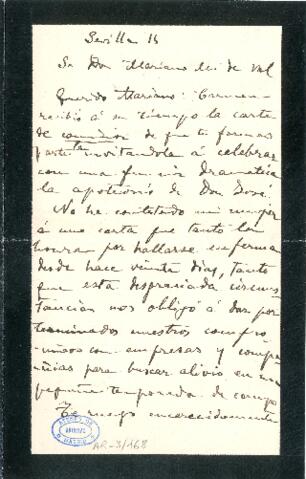 Sevilla 15
Sr Don Mariano Ml de Val
Querido Mariano: Carmen
recibió á su tiempo la carta
de comision de que tu formas
parte invitandola á celebrar
con una funcion dramatica
la apoteosis de Don José.
No ha contestado mi mujer
á una carta que tanto la
honra por hallarse enferma
desde hace veinte dias, tanto
que esta desgraciada circuns
tancia nos obligó á dar por
terminados nuestros compro
misos con empresas y compa
ñias para buscar alivio en una
pequeña temporada de campo
Te ruego encarecidamente
ATENEO DE
MADRID
AR-3/168